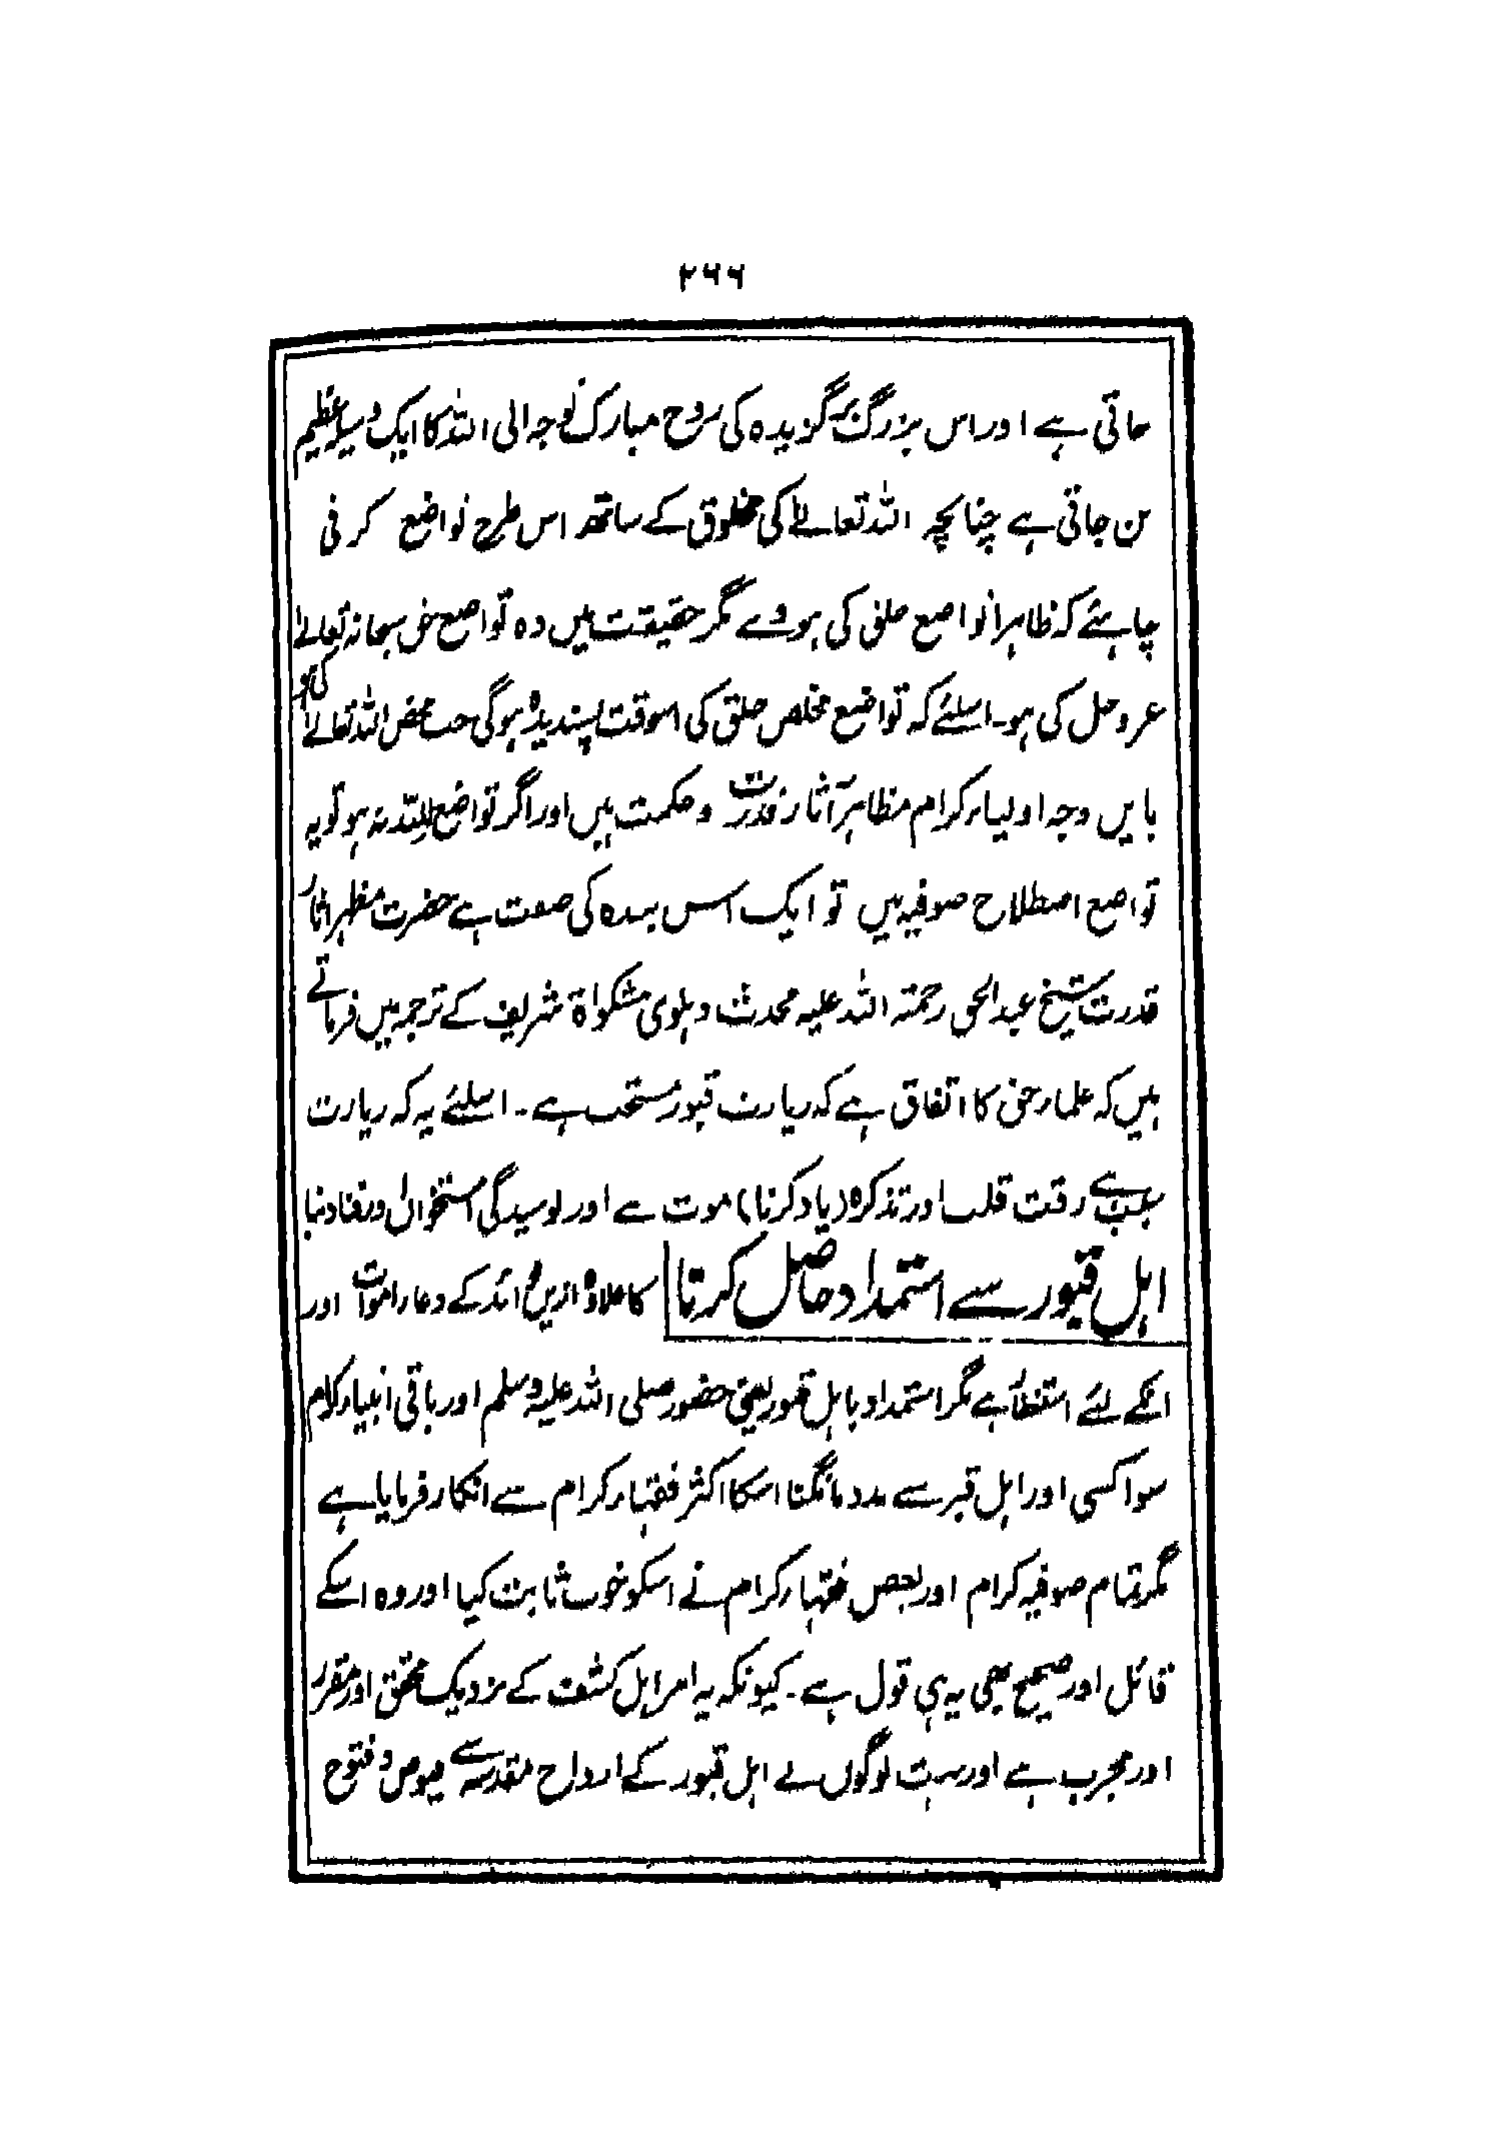 ۲۶۶
جاتی ہے اور اس بزرگ برگزیدہ کی روح مبارک توجہ الی اللہ کا ایک وسیلہ عظیم
بن جاتی ہے چنانچہ اللہ تعالےٰ کی مخلوق کے ساتھ اس طرح تواضع کرنی
چاہئے کہ ظاہراً تواضع خلق کی ہووے مگر حقیقت میں وہ تواضع حق سبحانہ تعالےٰ
عز وجل کی ہو۔ اسلئے کہ تواضع مخلص خلق کی اسوقت پسندیدہ ہوگی جب محض اللہ تعالےٰ کی ہو
بایں وجہ اولیاء کرام مظاہر آثار قدرت و حکمت ہیں اور اگر تواضع للہ نہ ہو تو یہ
تواضع اصطلاح صوفیہ میں تو ایک اسس بندہ کی صنعت ہے حضرت مظہر اثار
قدرت شیخ عبدالحق رحمتہ اللہ علیہ محدث دہلوی مشکواۃ شریف کے ترجمہ میں فرماتے
ہیں کہ علماء حق کا اتفاق ہے کہ زیارت قبور مستحب ہے۔ اسلئے یہ کہ زیارت
سبب ہے رقت قلب اور تذکرہ (یاد کرنا) موت سے اور بوسیدگی استخواں اور فنا دنیا
اہل قبور سے استمداد حاصل کرنا کا علاوہ ازیں فائد کے دعاء اموات اور
انکے لئے استغفار ہے مگر استمداد باہل قبور یعنی حضور صلی اللہ علیہ وسلم اور باقی انبیاء کلام
سوا کسی اور اہل قبر سے مدد مانگنا اسکا اکثر فقہاء کرام سے انکار فرمایا ہے
مگر تمام صوفیہ کرام اور بعض فقہاء کرام نے اسکو خوب ثابت کیا اور وہ اسکے
قائل اور صحیح بھی یہ ہی قول ہے۔ کیونکہ یہ امر اہل کشف کے نزدیک محقق اور مقرر
اور مجرب ہے اور بہت لوگوں نے اہل قبور کے ارواح مقدسہ سے فیوض و فتوح